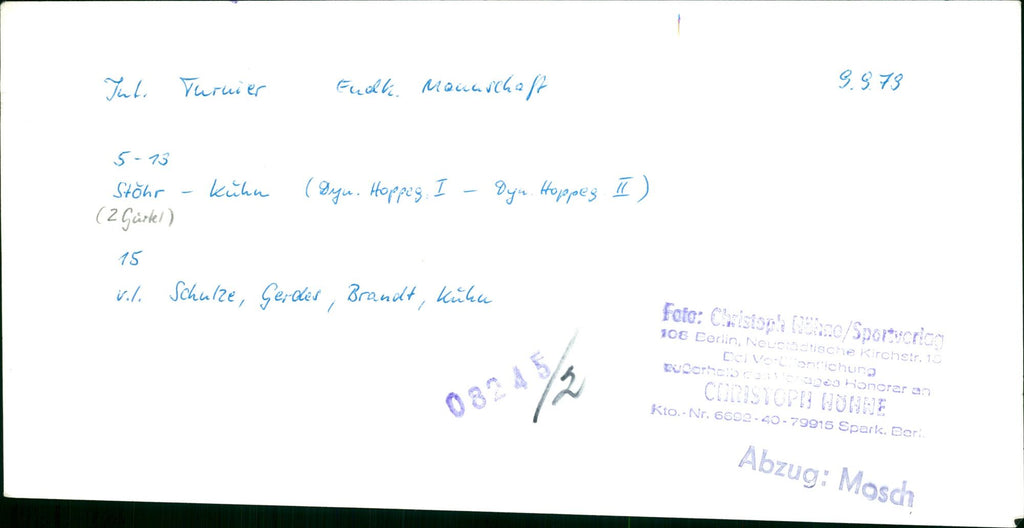 Int. Turnier Endk. Mannschaft 9.9.79
5-13
Stöhr - Kühn (Dyn. Hoppeg. I - Dyn. Hoppeg II)
(2 Gürtel)
15
v.l. Schulze, Gerdes, Brandt, Kühn
08245/2
Foto: Christoph Höhne/Sportverlag
108 Berlin, Neustädtische Kirchstr. 15
Bei Veröffentlichung
außerhalb des Verlages Honorar an
CHRISTOPH HÖHNE
Kto.-Nr. 6692-40-79915 Spark. Berl.
Abzug: Mosch